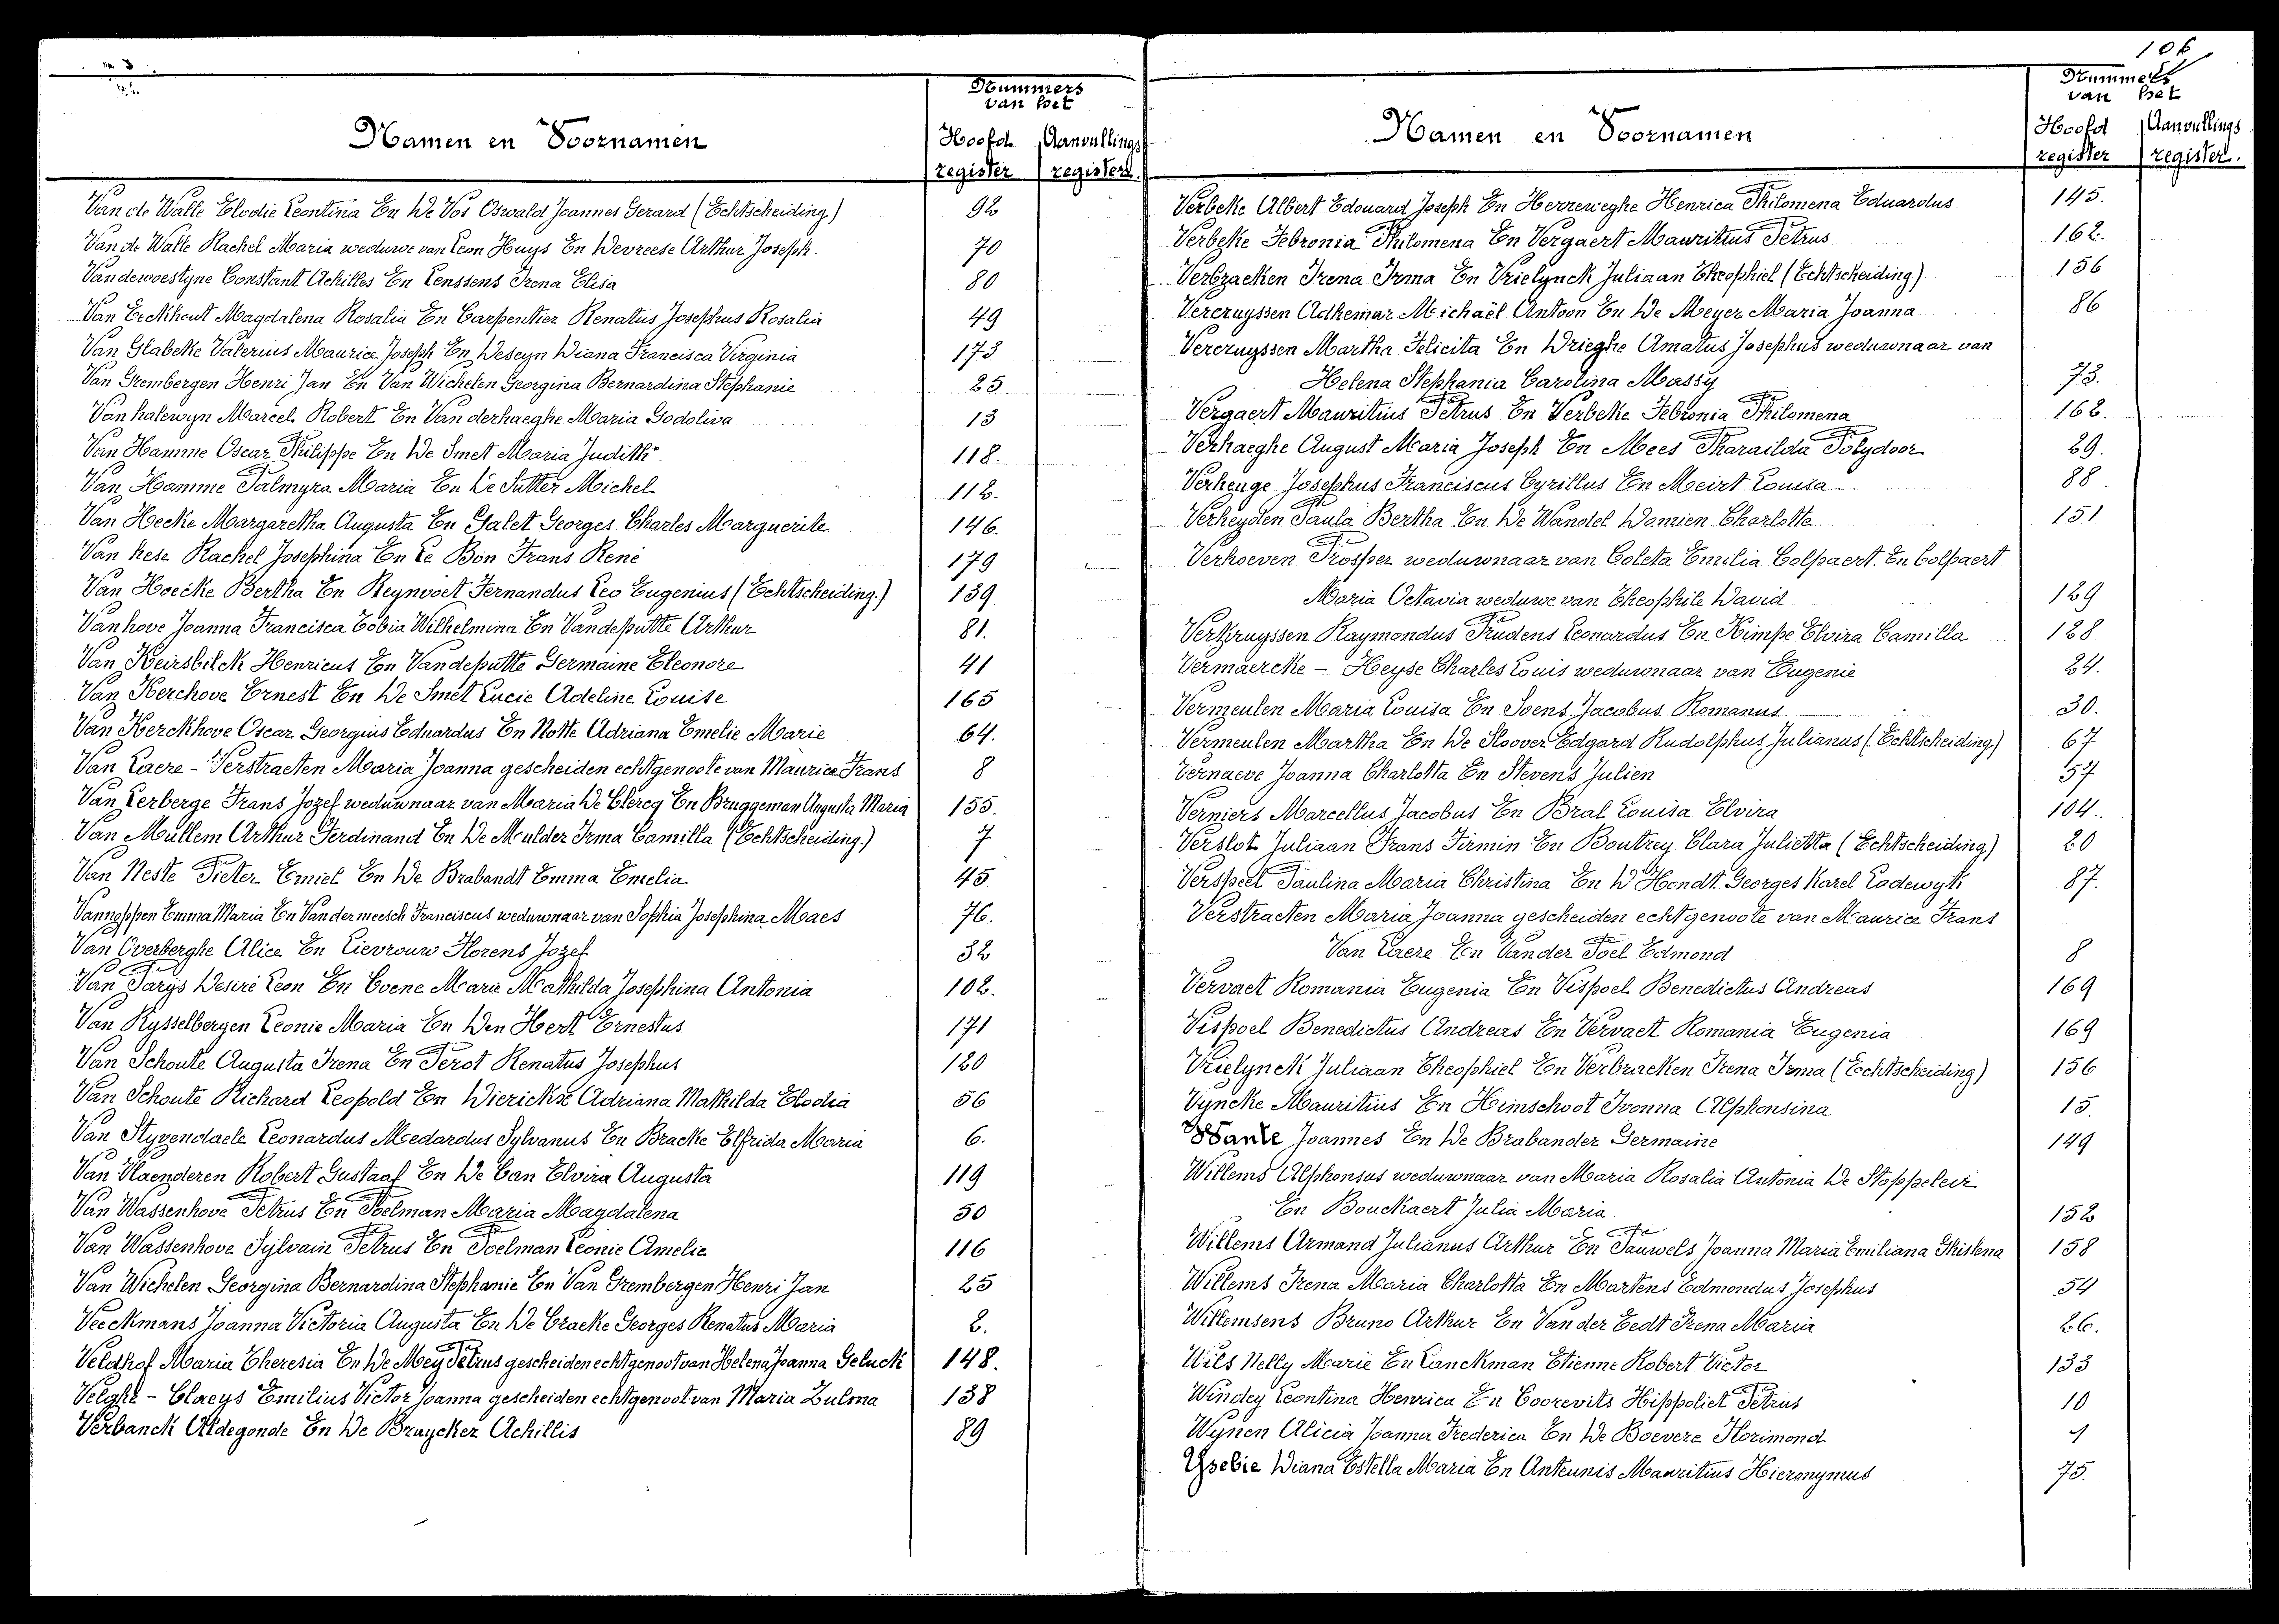 Namen en Voornamen
Nummers van het
Hoofd register
Aanvullings register
Van de Walle Elodie Leontina En De Vos Oswald Joannes Gerard (Echtscheiding) 92
Van de Walle Rachel Maria weduwe van Leon Huys En Devreese Arthur Joseph. 70
Vandewoestyne Constant Achilles En Lenssens Irena Elisa 80
Van Eeckhout Magdalena Rosalia En Carpentier Renatus Josephus Rosalia 49
Van Glabeke Valerius Maurice Joseph En Deseyn Diana Francisca Virginia 173
Van Grembergen Henri Jan En Van Wichelen Georgina Bernardina Stephanie 25
Van halewyn Marcel Robert En Van derhaeghe Maria Godoliva 13
Van Hamme Oscar Philippe En De Smet Maria Judith 118.
Van Hamme Palmyra Maria En De Sutter Michel 112.
Van Hecke Margaretha Augusta En Galet Georges Charles Marguerite 146.
Van hese Rachel Josephina En Le Bon Frans René 179
Van Hoecke Bertha En Reynvoet Fernandus Leo Eugenius (Echtscheiding.) 139.
Vanhove Joanna Francisca Tobia Wilhelmina En Vandeputte Arthur 81.
Van Keirsbilck Henricus En Vandeputte Germaine Eleonore 41
Van Kerchove Ernest En De Smet Lucie Adeline Louise 165
Van Kerckhove Oscar Georgius Eduardus En Notte Adriana Emelie Marie 64.
Van Laere - Verstraeten Maria Joanna gescheiden echtgenoote van Maurice Frans 8
Van Lerberge Frans Jozef weduwnaar van Maria De Clercq En Bruggeman Augusta Maria 155.
Van Mullem Arthur Ferdinand En De Mulder Irma Camilla (Echtscheiding.) 7
Van Neste Pieter Emiel En De Brabandt Emma Emelia 45
Vannoppen Emma Maria En Vandermeesch Franciscus weduwnaar van Sophia Josephina Maes 76.
Van Overberghe Alice En Lievrouw Florens Jozef 32
Van Parijs Desiré Leon En Coene Marie Mathilda Josephina Antonia 102.
Van Rysselbergen Leonie Maria En Den Hert Ernestus 171
Van Schoute Augusta Irena En Perot Renatus Josephus 120
Van Schoute Richard Leopold En Dierickse Adriana Mathilda Elodia 56
Van Styvendaele Leonardus Medardus Sylvanus En Bracke Elfrida Maria 6.
Van Vlaenderen Robert Gustaaf En De Can Elvira Augusta 119
Van Wassenhove Petrus En Poelman Maria Magdalena 50
Van Wassenhove Sylvain Petrus En Poelman Leonie Amelie 116
Van Wichelen Georgina Bernardina Stephanie En Van Grembergen Henri Jan 25
Veeckmans Joanna Victoria Augusta En De Cracke Georges Renatus Maria 2.
Veldhof Maria Theresia En De Mey Petrus gescheiden echtgenoot van Helena Joanna Geluck 148.
Velghe - Claeys Emilius Victor Joanna gescheiden echtgenoot van Maria Zulma 138
Verbanck Aldegonde En De Bruycker Achillis 89
106
Namen en Voornamen
Nummers van het
Hoofd register
Aanvullings register.
Verbeke Albert Edouard Joseph En Herreweghe Henrica Philomena Eduardus 145.
Verbeke Febronia Philomena En Vergaert Mauritius Petrus 162.
Verbraeken Irena Irma En Vrielynck Juliaan Theophiel (Echtscheiding) 156
Vercruyssen Adhemar Michaël Antoon En De Meyer Maria Joanna 86
Vercruyssen Martha Felicita En Drieghe Amatus Josephus weduwnaar van
Helena Stephania Carolina Massy 73.
Vergaert Mauritius Petrus En Verbeke Febronia Philomena 162.
Verhaeghe August Maria Joseph En Mees Pharailda Polydoor 29.
Verheuge Josephus Franciscus Cyrillus En Meirt Louisa 88.
Verheyden Paula Bertha En De Wandel Damien Charlotte 151
Verhoeven Prosper weduwnaar van Coleta Emilia Colpaert. En Colpaert
Maria Octavia weduwe van Theophile David 129
Verkruyssen Raymondus Prudens Leonardus En Kimpe Elvira Camilla 128
Vermaercke - Heyse Charles Louis weduwnaar van Eugenie 24.
Vermeulen Maria Louisa En Soens Jacobus Romanus 30.
Vermeulen Martha En De Sloover Edgard Rudolphus Julianus (Echtscheiding) 67
Vernaeve Joanna Charlotta En Stevens Julien 57
Verniers Marcellus Jacobus En Bral Louisa Elvira 104.
Verslot Juliaan Frans Firmin En Boutrey Clara Julietta (Echtscheiding) 20
Verspeel Paulina Maria Christina En D'Hondt Georges Karel Lodewyk 87.
Verstraeten Maria Joanna gescheiden echtgenoote van Maurice Frans
Van Laere En Vander Poel Edmond 8
Vervaet Romania Eugenia En Vispoel Benedictus Andreas 169
Vispoel Benedictus Andreas En Vervaet Romania Eugenia 169
Vrielynck Juliaan Theophiel En Verbraeken Irena Irma (Echtscheiding) 156
Vyncke Mauritius En Himschoot Ivonna Alphonsina 15.
Wante Joannes En De Brabander Germaine 149
Willems Alphonsus weduwnaar van Maria Rosalia Antonia De Stoppeleir
En Bouckaert Julia Maria 152
Willems Armand Julianus Arthur En Pauwels Joanna Maria Emiliana Ghislena 158
Willems Irena Maria Charlotta En Martens Edmondus Josephus 54
Willemsens Bruno Arthur En Van der Eedt Irena Maria 26.
Wils Nelly Marie En Lanckman Etienne Robert Victor 133
Windey Leontina Henrica En Coorevits Hippoliet Petrus 10
Wynen Alicia Joanna Frederica En De Boevere Florimond
Ysebie Diana Estella Maria En Anteunis Mauritius Hieronymus 75.